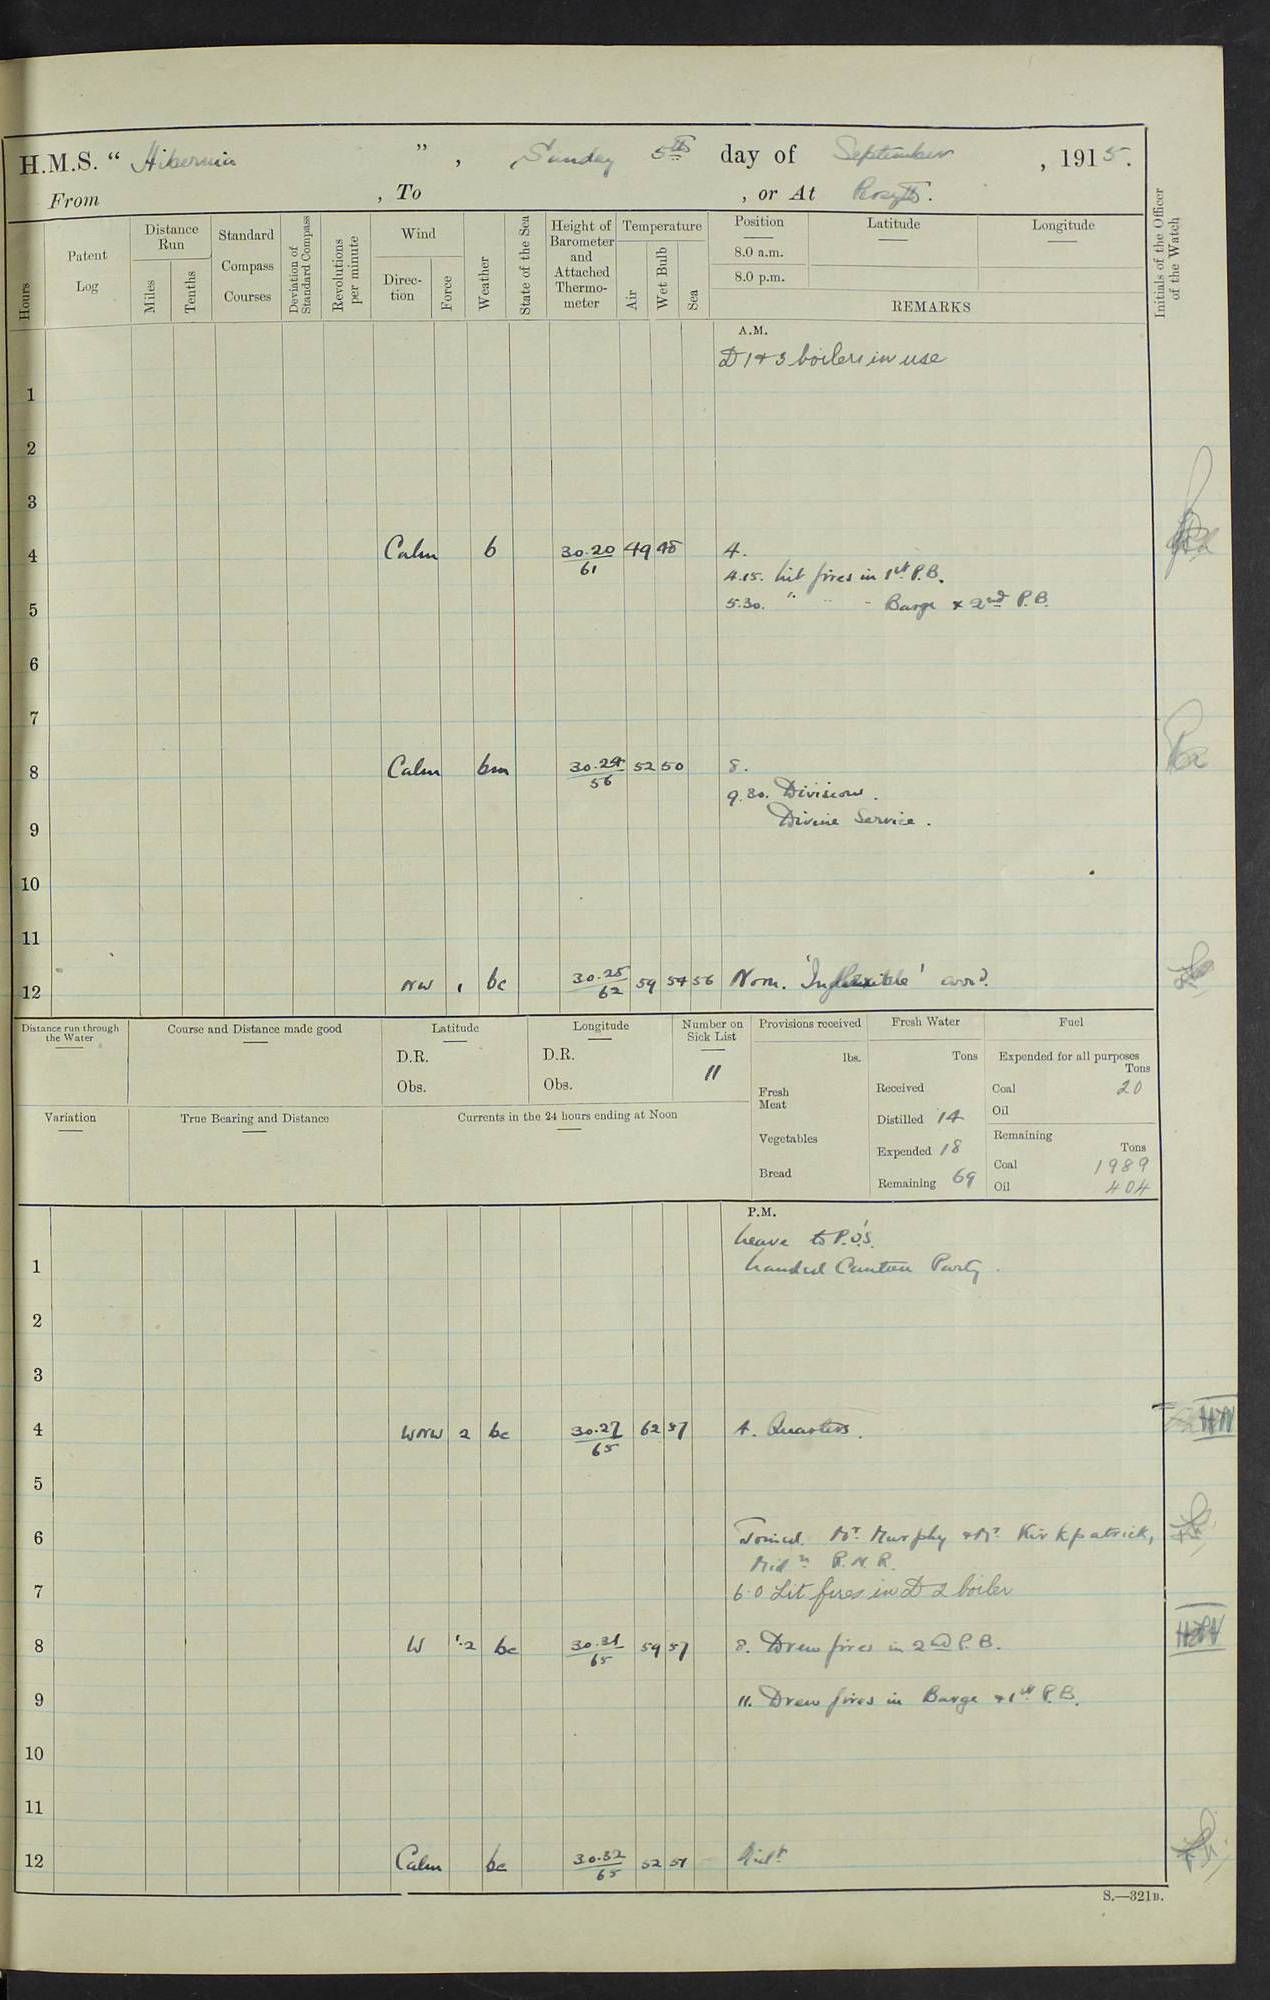 H.M.S. “ Hibernia ” , Sunday 5th day of September , 1915.
From , To , or At Rosyth.
Hours
Patent Log
Distance Run
Miles
Tenths
Standard Compass Courses
Deviation of Standard Compass
Revolutions per minute
Wind
Direction
Force
Weather
State of the Sea
Height of Barometer and Attached Thermometer
Temperature
Air
Wet Bulb
Sea
Position
8.0 a.m.
8.0 p.m.
Latitude
Longitude
REMARKS
Initials of the Officer of the Watch
A.M.
D 1 & 3 boilers in use
1
2
3
4 Calm b 30.20/61 49 48 4.
4.15. Lit fires in 1st P.B.
5 5.30. " " " Barge & 2nd P.B.
6
7
8 Calm bm 30.24/56 52 50 8.
9.30. Divisions.
9 Divine Service.
10
11
12 NW 1 bc 30.25/62 59 54 56 Noon. 'Inflexible' arrd.
Distance run through the Water
Course and Distance made good
Latitude
D.R.
Obs.
Longitude
D.R.
Obs.
Number on Sick List
11
Provisions received
lbs.
Fresh Meat
Vegetables
Bread
Fresh Water
Tons
Received
Distilled 14
Expended 18
Remaining 69
Fuel
Expended for all purposes
Tons
Coal 20
Oil
Remaining
Tons
Coal 1989
Oil 404
Variation
True Bearing and Distance
Currents in the 24 hours ending at Noon
P.M.
Leave to P.O's.
1 Landed Canteen Party.
2
3
4 WNW 2 bc 30.27/65 62 57 4. Quarters.
5
6 Joined Mr. Murphy & Mr. Kirkpatrick,
Midn R.N.R.
7 6.0 Lit fires in D 2 boiler
8 W 1.2 bc 30.31/65 59 57 8. Drew fires in 2nd P.B.
9 11. Drew fires in Barge & 1st P.B.
10
11
12 Calm bc 30.32/65 52 51 Midt
S.—321B.